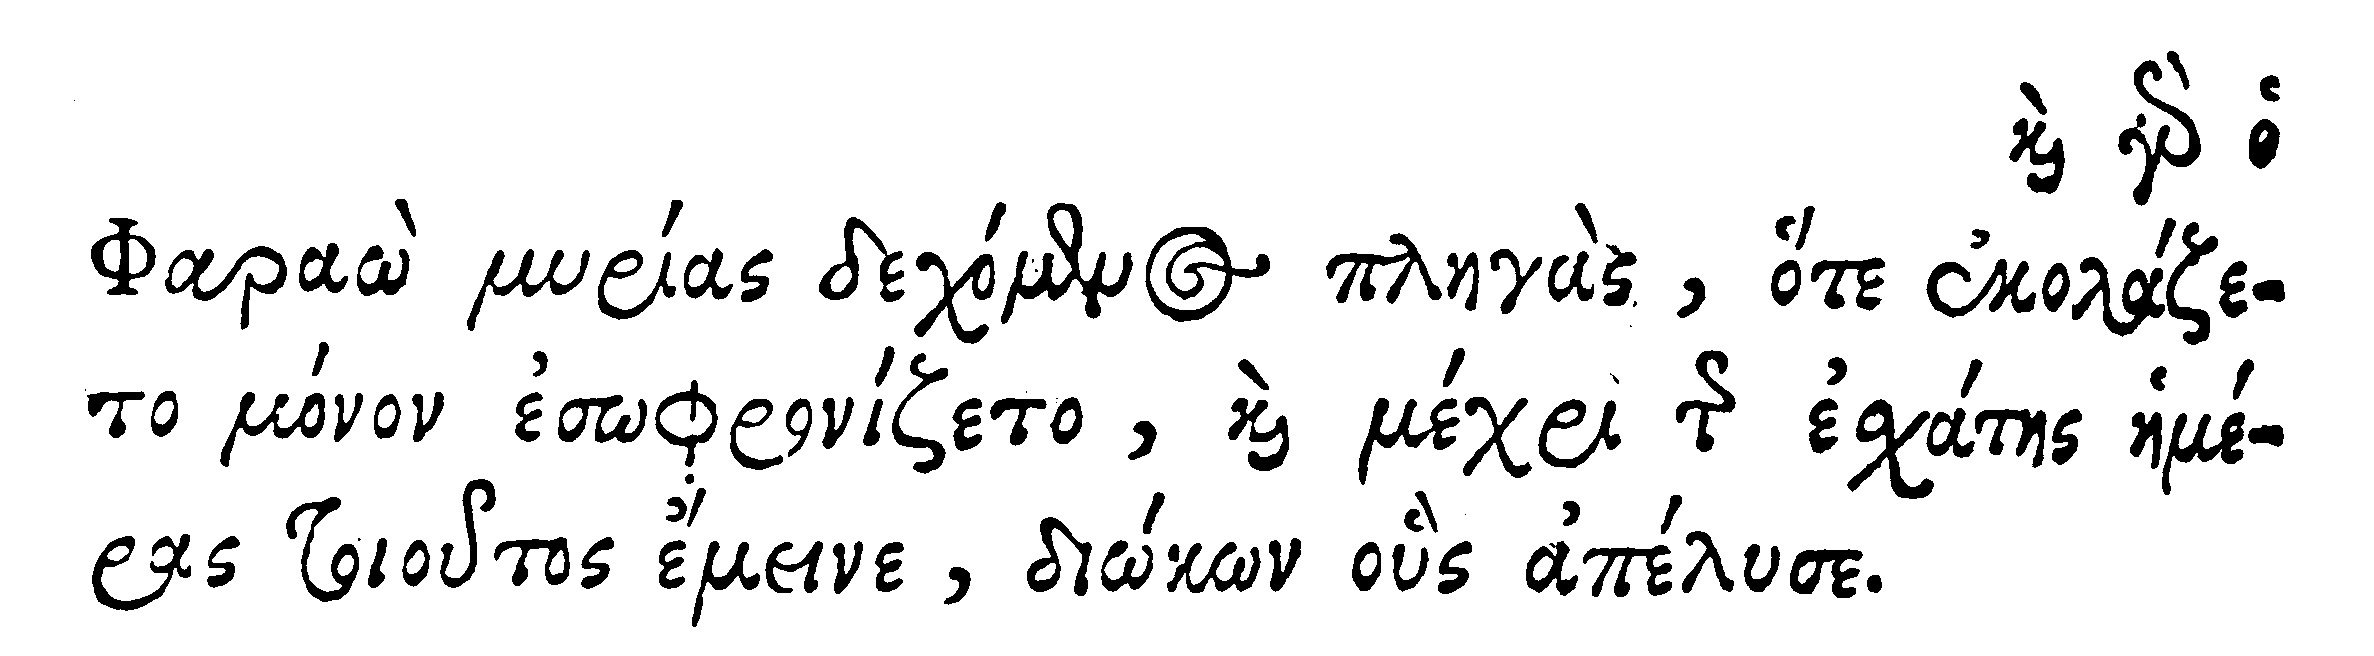 καὶ γὰρ ὁ
Φαραὼ μυρίας δεχόμενος πληγὰς, ὅτε ἐκολάζε-
το μόνον ἐσωφρονίζετο, καὶ μέχρι τῆς ἐσχάτης ἡμέ-
ρας τοιοῦτος ἔμεινε, διώκων οὓς ἀπέλυσε.